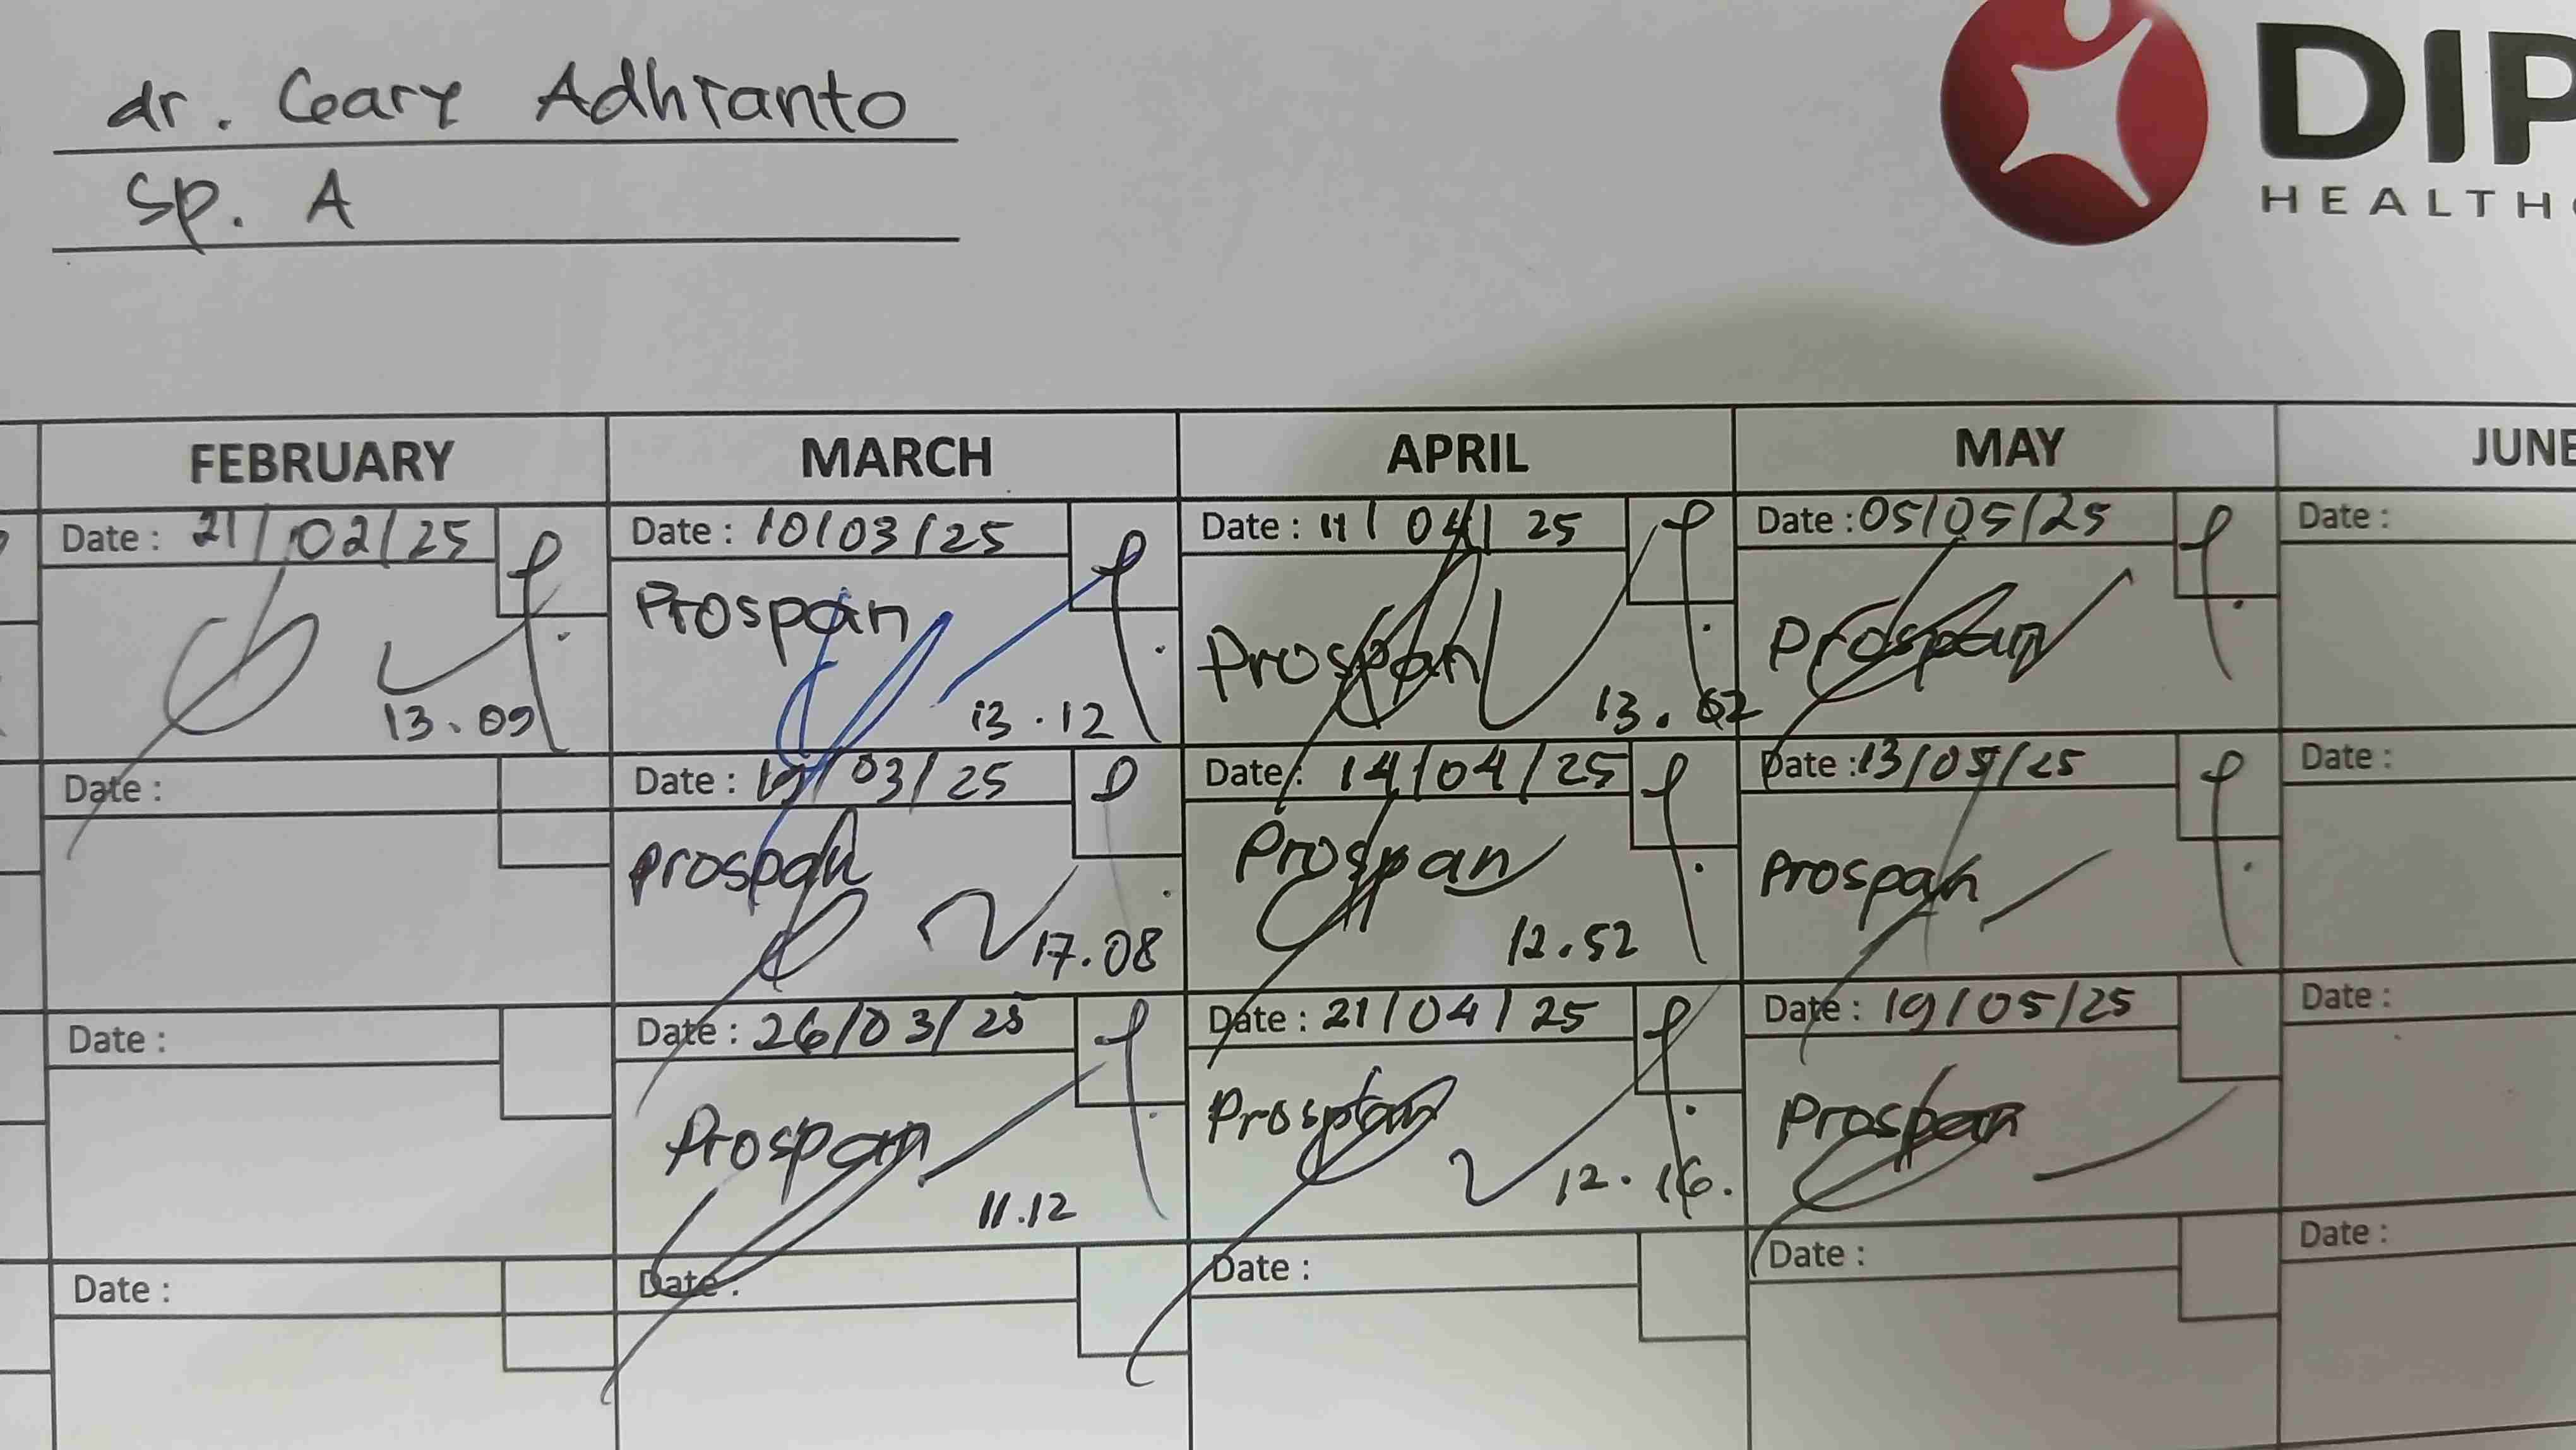 dr. Geary Adhianto
Sp. A
DIP
HEALTH
FEBRUARY MARCH APRIL MAY JUNE
Date : 21/02/25 Date : 10/03/25 Date : 11/04/25 Date : 05/05/25 Date :
Prospan Prospan Prospan
13.09 13.12 13.02
Date : Date : 19/03/25 Date : 14/04/25 Date : 13/05/25 Date :
Prospan Prospan Prospan
17.08 12.52
Date : Date : 26/03/25 Date : 21/04/25 Date : 19/05/25 Date :
Prospan Prospan Prospan
11.12 12.16.
Date : Date : Date : Date : Date :